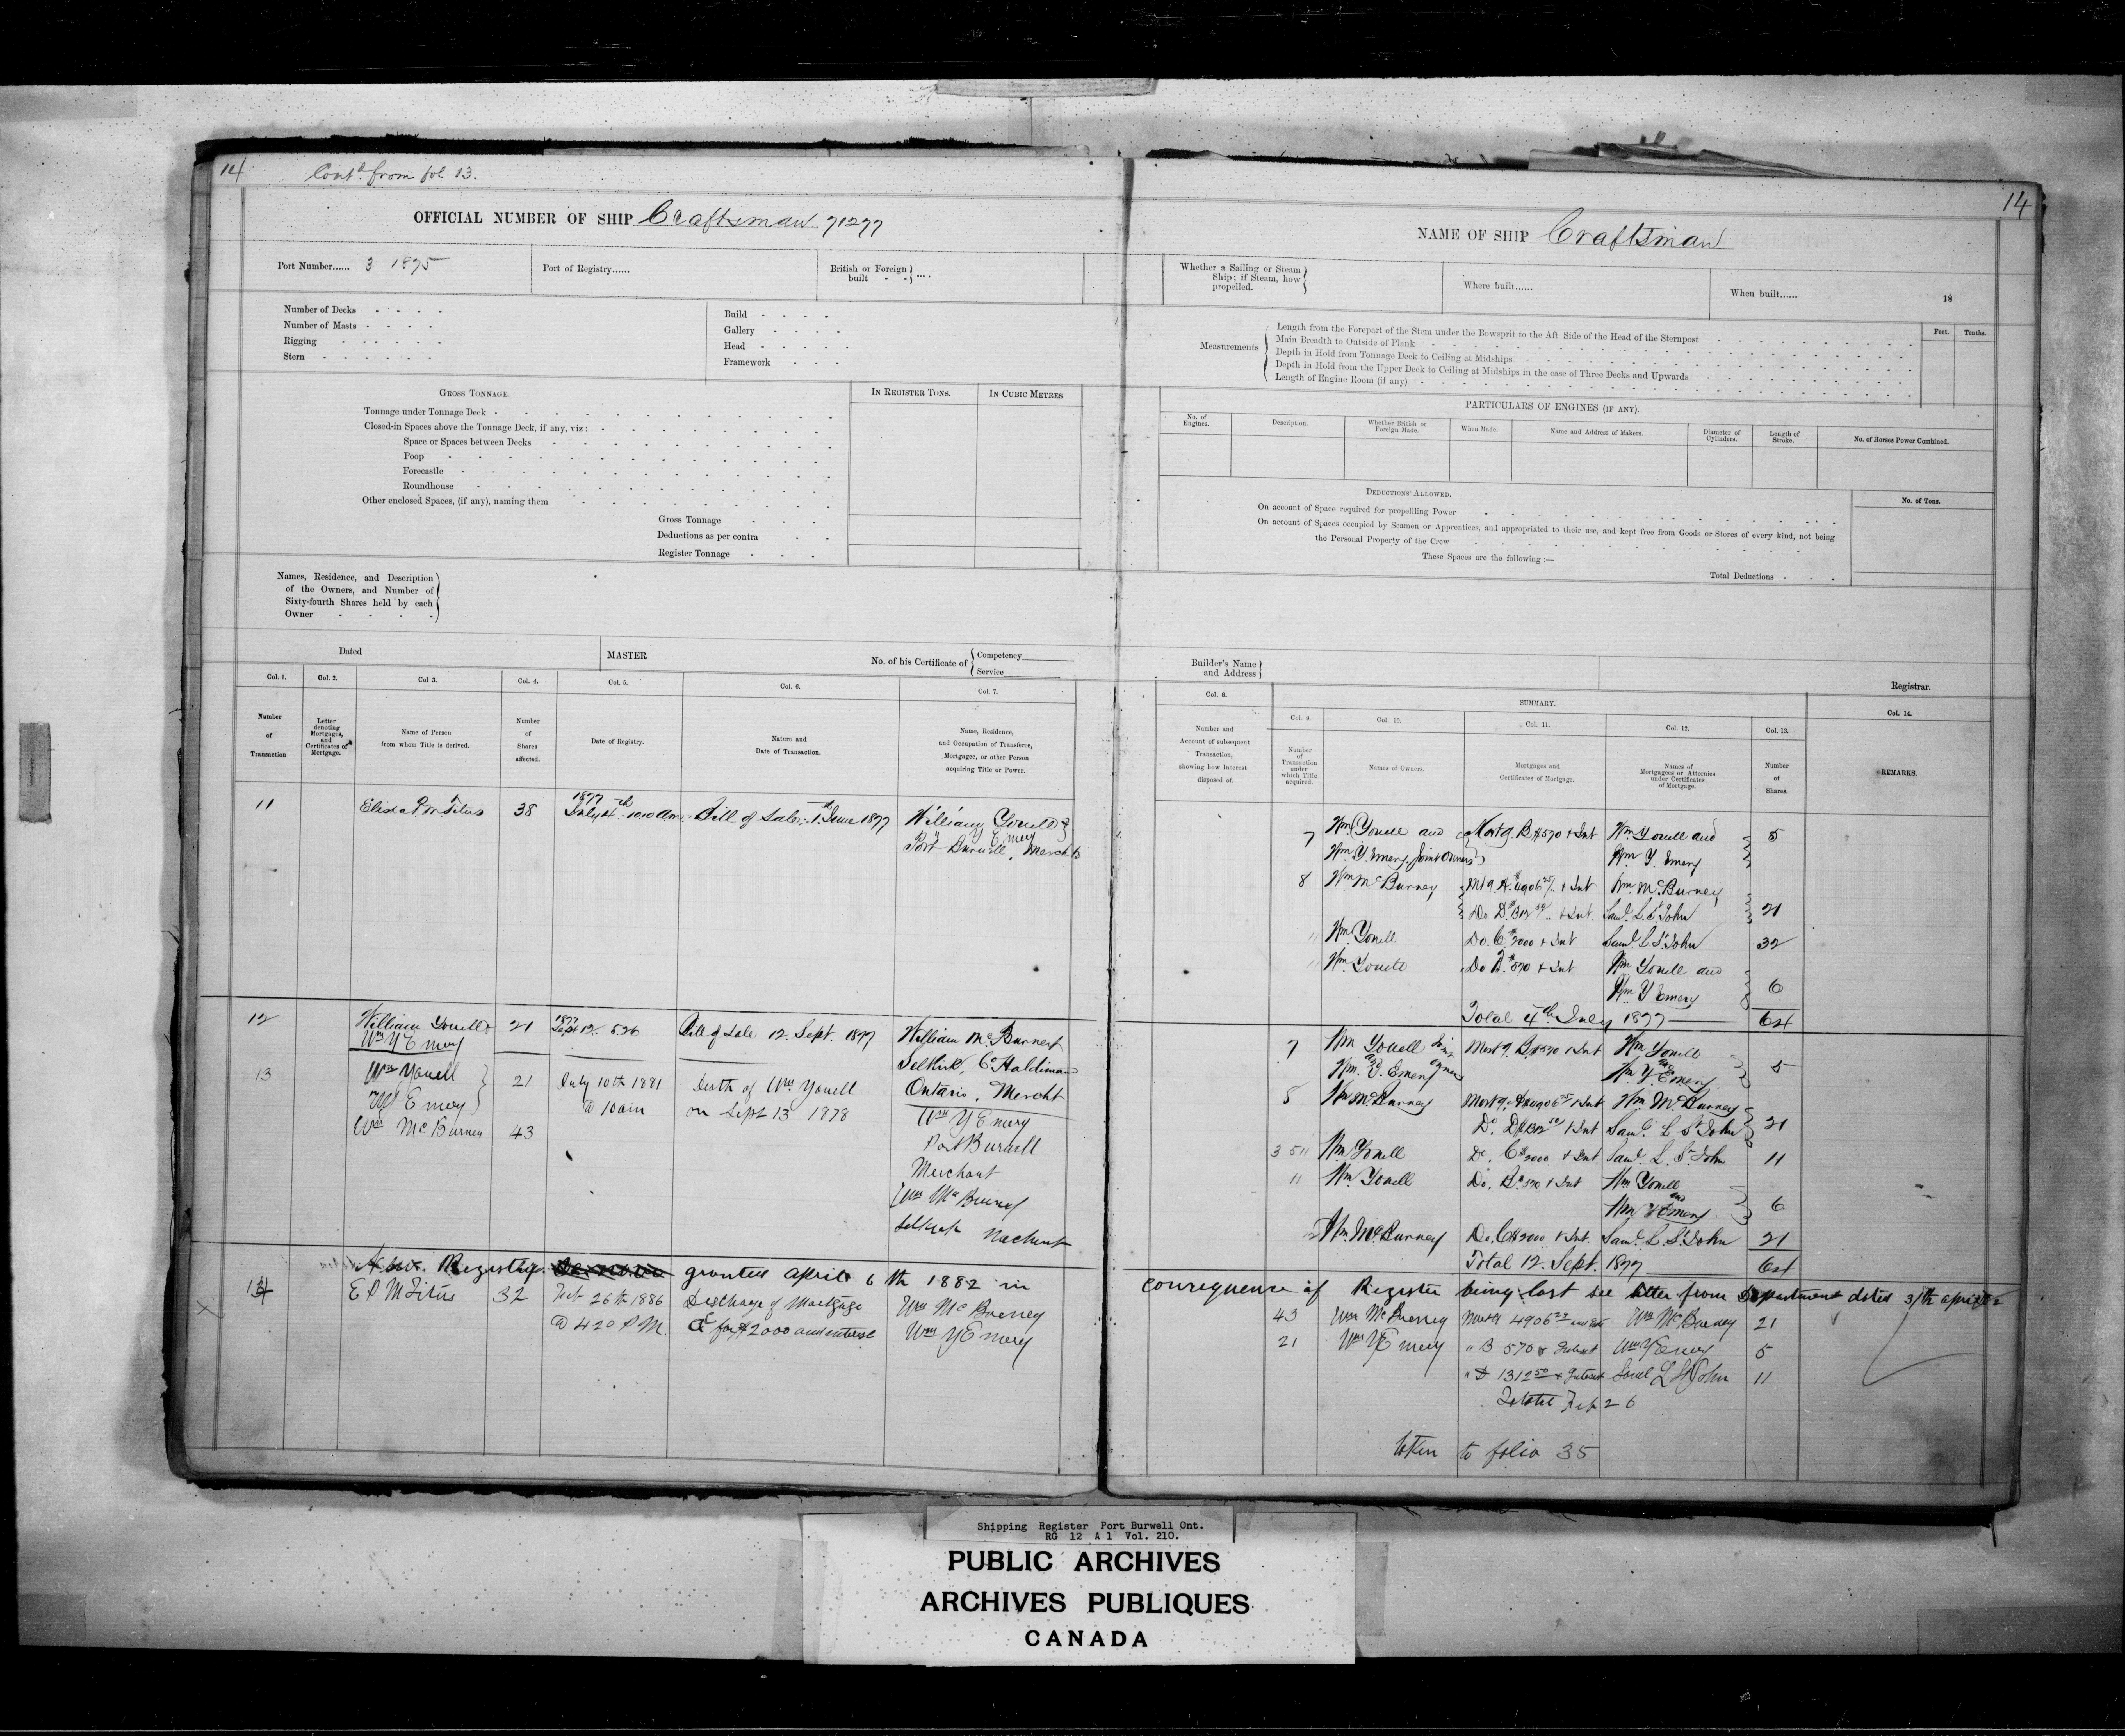 14
Contd. from fol. 13.
OFFICIAL NUMBER OF SHIP Craftsman 71277
Port Number...... 3 1875
Port of Registry......
British or Foreign built - - ....
Number of Decks - - - -
Number of Masts - - - -
Rigging - - - - -
Stern - - - - - -
Build - - - -
Gallery - - - -
Head - - - - -
Framework - - - -
GROSS TONNAGE.
IN REGISTER TONS.
IN CUBIC METRES
Tonnage under Tonnage Deck
Closed-in Spaces above the Tonnage Deck, if any, viz:
Space or Spaces between Decks
Poop
Forecastle
Roundhouse
Other enclosed Spaces, (if any), naming them
Gross Tonnage
Deductions as per contra
Register Tonnage
Names, Residence, and Description
of the Owners, and Number of
Sixty-fourth Shares held by each
Owner
Dated
MASTER
No. of his Certificate of
Competency
Service
Col. 1.
Col. 2.
Col 3.
Col. 4.
Col. 5.
Col. 6.
Col. 7.
Number of Transaction
Letter denoting Mortgages, and Certificates of Mortgage.
Name of Person from whom Title is derived.
Number of Shares affected.
Date of Registry.
Nature and Date of Transaction.
Name, Residence, and Occupation of Transferee, Mortgagee, or other Person acquiring Title or Power.
11
Titus
38
1877
July 4th 10.10 am
Bill of Sale, 1st June 1877
William Youell &
Wm Y Emery
Port Burwell, Merchts
12
William Youell &
Wm Y Emery
21
1877
Sept 12
Bill of Sale 12 Sept. 1877
William McBurney
Selkirk, Co Haldimand
Ontario, Mercht
13
Wm Youell
W Y Emery
21
Wm McBurney
43
July 10th 1881
@ 10 am
Death of Wm. Youell
on Sept 13 1878
Wm Y Emery
Port Burwell
Merchant
Wm McBurney
Selkirk Merchant
New Registry granted April 6th 1882 in
14
E P M Titus
32
Feb 26th 1886
@ 4 20 P.M.
Discharge of Mortgage
C for $2000 and interest
Wm McBurney
Wm Y Emery
14
NAME OF SHIP Craftsman
Whether a Sailing or Steam
Ship; if Steam, how
propelled.
Where built......
When built......
18
Measurements
Feet.
Tenths.
Length from the Forepart of the Stem under the Bowsprit to the Aft Side of the Head of the Sternpost
Main Breadth to Outside of Plank
Depth in Hold from Tonnage Deck to Ceiling at Midships
Depth in Hold from the Upper Deck to Ceiling at Midships in the case of Three Decks and Upwards
Length of Engine Room (if any)
PARTICULARS OF ENGINES (IF ANY).
No. of Engines.
Description.
Whether British or Foreign Made.
When Made.
Name and Address of Makers.
Diameter of Cylinders.
Length of Stroke.
No. of Horses Power Combined.
DEDUCTIONS ALLOWED.
No. of Tons.
On account of Space required for propellling Power
On account of Spaces occupied by Seamen or Apprentices, and appropriated to their use, and kept free from Goods or Stores of every kind, not being
the Personal Property of the Crew
These Spaces are the following :—
Total Deductions
Builder's Name
and Address
Registrar.
Col. 8.
SUMMARY.
Col. 14.
Col. 9.
Col. 10.
Col. 11.
Col. 12.
Col. 13.
Number and Account of subsequent Transaction, showing how Interest disposed of.
Number of Transaction under which Title acquired.
Names of Owners.
Mortgages and Certificates of Mortgage.
Names of Mortgagees or Attornies under Certificates of Mortgage.
Number of Shares.
REMARKS.
7 Wm Youell and Mortg. B $570 & Int Wm Youell and 5
Wm Y. Emery, Joint Owners Wm Y. Emery
8 Wm McBurney Mtg. A $4906 & Int Wm McBurney
Do D. & Int. Saml. L. St John 21
11 Wm Youell Do. C $2000 & Int Saml. L. St John 32
11 Wm Youell Do $570 & Int Wm Youell and
Wm Y Emery 6
Total 4th July 1877 64
7 Wm Youell Joint Mortg. B $570 & Int Wm Youell
and Wm. Y. Emery owners and Wm Y. Emery 5
8 Wm McBurney Mortg. A $4906 & Int Wm. McBurney
Do. D & Int Saml. L St John 21
3 5 11 Wm Youell Do. C $2000 & Int Saml. L. St. John 11
11 Wm Youell Do. B $570 & Int Wm Youell
and Wm Y Emery 6
12 Wm. McBurney Do. C $2000 & Int. Saml. L. St John 21
Total 12. Sept. 1877 64
consequence of Register being lost see letter from Department dated
43 Wm McBurney 4906 Wm McBurney 21
21 Wm Y Emery " B 570 & Interest Wm Y Emery 5
" D 1312 50 & Interest Saml L St John 11
Feb 26
taken to folio 35
Shipping Register Port Burwell Ont.
RG 12 A 1 Vol. 210.
PUBLIC ARCHIVES
ARCHIVES PUBLIQUES
CANADA